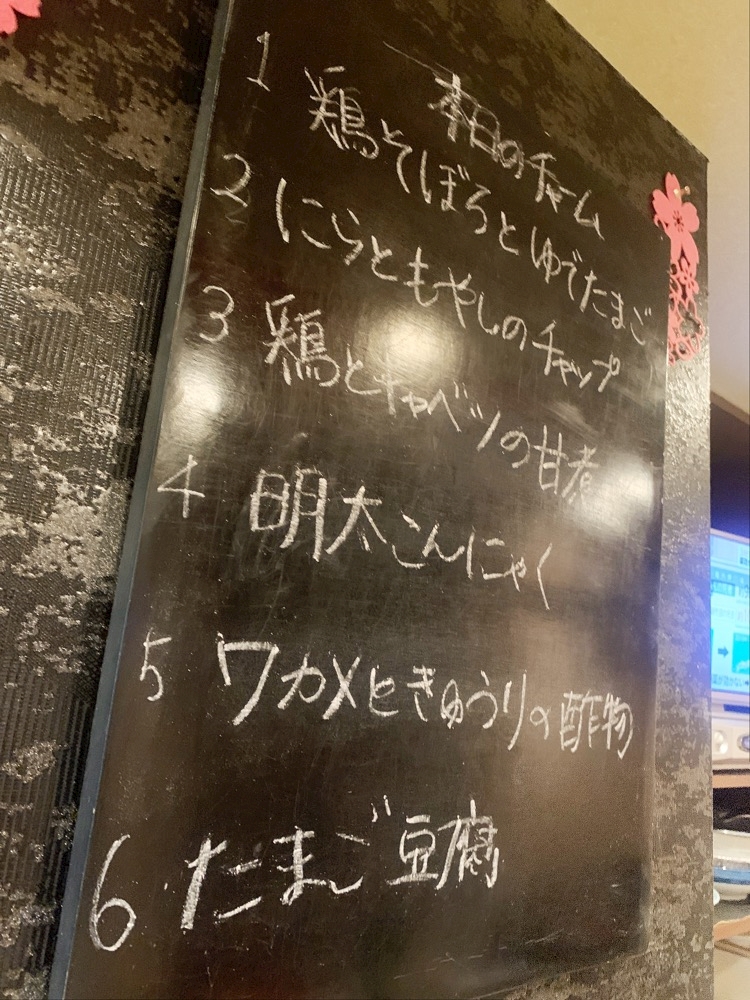 本日のチャーム
1 鶏そぼろとゆでたまご
2 にらともやしのチャップ
3 鶏とキャベツの甘煮
4 明太こんにゃく
5 ワカメときゅうりの酢物
6 たまご豆腐